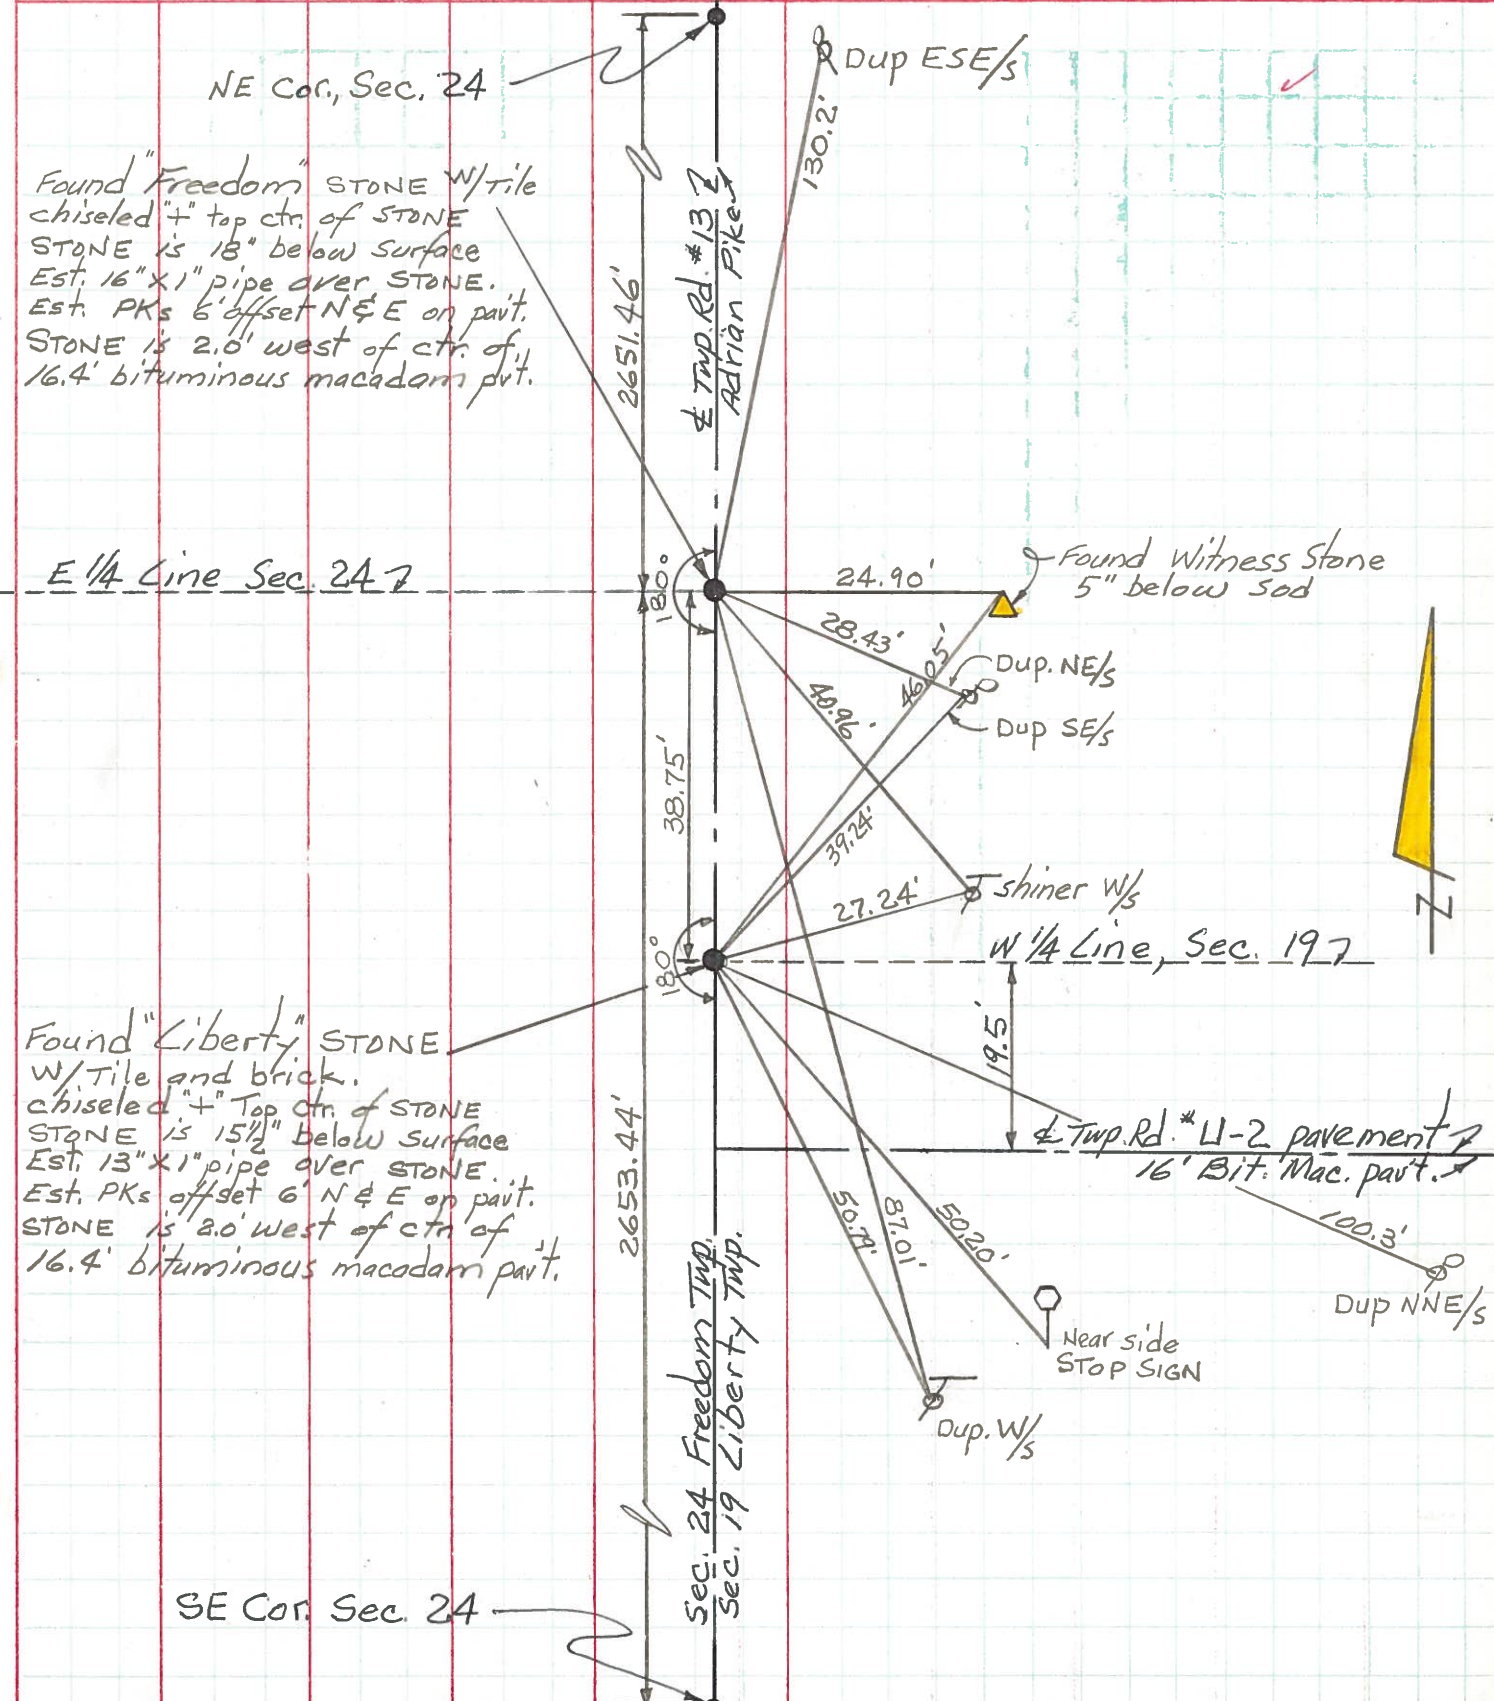 Dup ESE/s
NE Cor., Sec. 24
130.2'
Found "Freedom" STONE W/Tile
chiseled "+" top ctr. of STONE
STONE is 18" below surface
Est. 16" X 1" pipe over STONE.
Est. PKs 6' offset N & E on pav't.
STONE is 2.0' west of ctr. of
16.4' bituminous macadam pvt.
2651.46'
℄ Twp. Rd. #13
Adrian Pike
E 1/4 Line Sec. 24
180°
24.90'
Found Witness Stone
5" below sod
28.43'
46.05'
Dup. NE/s
40.96'
Dup SE/s
38.75'
39.24'
shiner W/s
27.24'
W 1/4 Line, Sec. 19
180°
19.5'
Found "Liberty" STONE
W/Tile and brick.
chiseled "+" Top ctr. of STONE
STONE is 15 1/2" below surface
Est. 13" X 1" pipe over STONE.
Est. PKs offset 6' N & E on pav't.
STONE is 2.0' west of ctr. of
16.4' bituminous macadam pav't.
2653.44'
℄ Twp. Rd. # U-2 pavement
16' Bit. Mac. pav't.
50.79'
87.01'
50.20'
100.3'
Dup NNE/s
Near side
STOP SIGN
Dup. W/s
Sec. 24 Freedom Twp.
Sec. 19 Liberty Twp.
SE Cor. Sec. 24
N